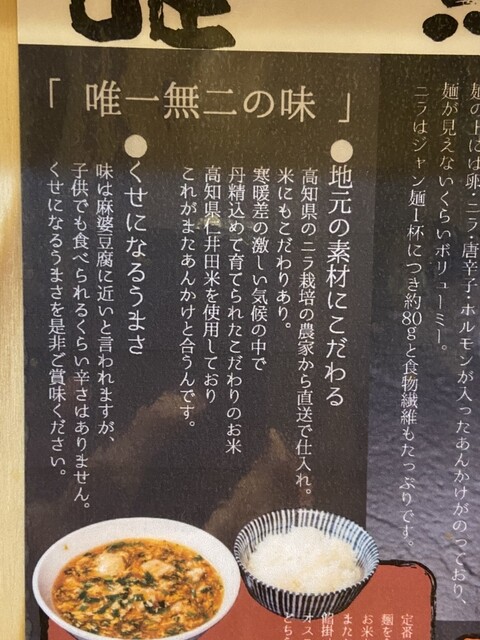 麺の上には卵・ニラ・唐辛子・ホルモンが入ったあんかけがのっており、
麺が見えないくらいボリューミー。
ニラはジャン麺1杯につき約80gと食物繊維もたっぷりです。
「唯一無二の味」
●地元の素材にこだわる
高知県のニラ栽培の農家から直送で仕入れ。
米にもこだわりあり。
寒暖差の激しい気候の中で
丹精込めて育てられたこだわりのお米
高知県仁井田米を使用しており
これがまたあんかけと合うんです。
●くせになるうまさ
味は麻婆豆腐に近いと言われますが、
子供でも食べられるくらい辛さはありません。
くせになるうまさを是非ご賞味ください。
定番
麺を
お米
また